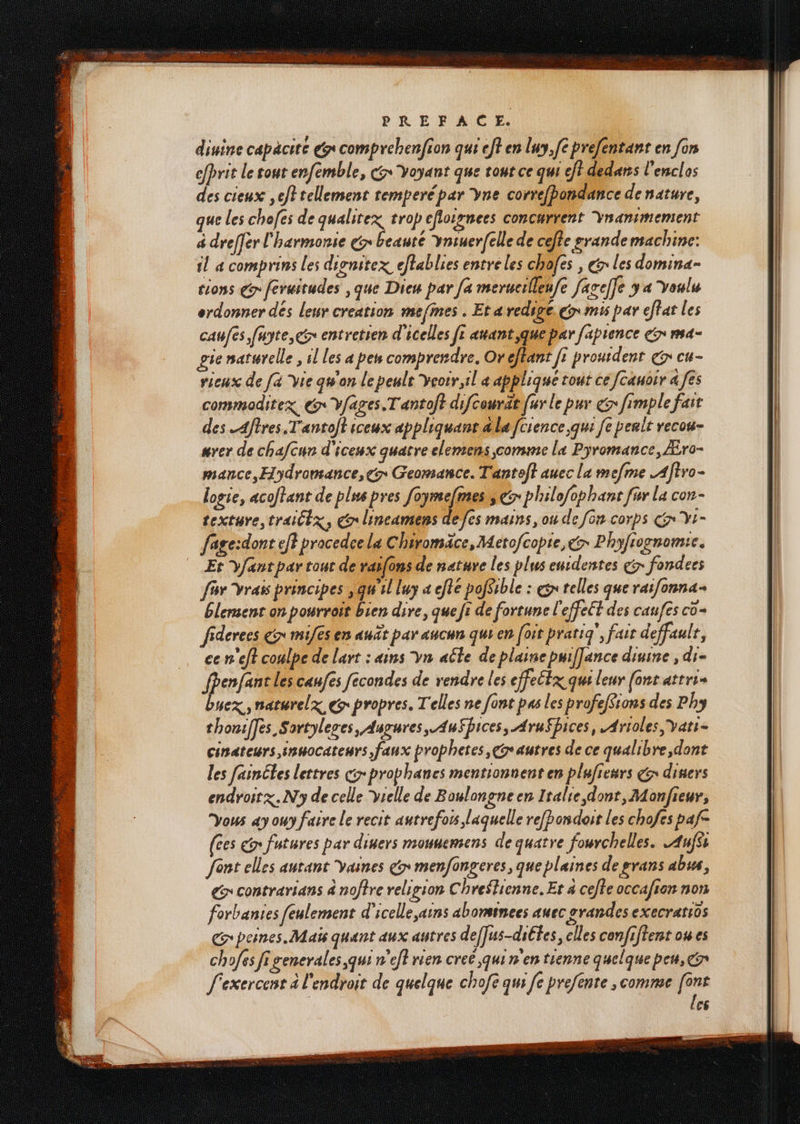 PREFACE.
diuine capàcité & comprehension qui est en luy, se presentant en son
esprit le tout ensemble, & voyant que tout ce qui est dedans l'enclos
des cieux , est tellement temperé par vne correspondance de nature,
que les choses de qualitez trop esloignees concurrent vnanimement
à dresser l'harmonie & beauté vniuerselle de ceste grande machine:
il a comprins les dignitez establies entre les choses , & les domina-
tions & seruitudes , que Dieu par sa merueilleuse sagesse y a voulu
ordonner dés leur creation mesmes . Et a redigé & mis par estat les
causes, suyte, & entretien d'icelles si auant, que par sapience & ma-
gie naturelle , il les a peu comprendre. Or estant si prouident & cu-
rieux de sa vie qu'on le peult veoir, il a appliqué tout ce sçauoir à ses
commoditez & vsages. Tantost discourāt sur le pur & simple fait
des Astres. Tantost iceux appliquant à la science, qui se peult recou-
urer de chascun d'iceux quatre elemens, comme la Pyromance, Æro-
mance, Hydromance, & Geomance. Tantost auec la mesme Astro-
logie, acostant de plus pres soymesmes , & philosophant sur la con-
texture, traictz, & lineamens de ses mains, ou de son corps & vi-
sage: dont est procedee la Chiromāce, Metoscopie, & Physiognomie.
Et vsant par tout de raisons de nature les plus euidentes & fondees
sur vrais principes , qu'il luy a esté possible : & telles que raisonna-
blement on pourroit bien dire, que si de fortune l'effect des causes cō-
siderees & mises en auāt par aucun qui en soit pratiq', fait deffault,
ce n'est coulpe de lart : ains vn acte de plaine puissance diuine , di-
spensant les causes secondes de rendre les effectz qui leur sont attri-
buez , naturelz & propres. Telles ne sont pas les professions des Phy
thonisses, Sortyleges, Augures, Auspices, Aruspices, Arioles, vati-
cinateurs, inuocateurs, faux prophetes, & autres de ce qualibre, dont
les sainctes lettres & prophanes mentionnent en plusieurs & diuers
endroitz. Ny de celle vielle de Boulongne en Italie, dont, Monsieur,
vous ay ouy faire le recit autrefois, laquelle respondoit les choses pas-
sees & futures par diuers mouuemens de quatre fourchelles. Aussi
sont elles autant vaines & mensongeres, que plaines de grans abus,
& contrarians à nostre religion Chrestienne. Et à ceste occasion non
forbanies seulement d'icelle, ains abominees auec grandes execratiōs
& peines. Mais quant aux autres dessus-dictes, elles consistent ou es
choses si generales, qui n'est rien creé, qui n'en tienne quelque peu, &
s'exercent à l'endroit de quelque chose qui se presente , comme sont
les